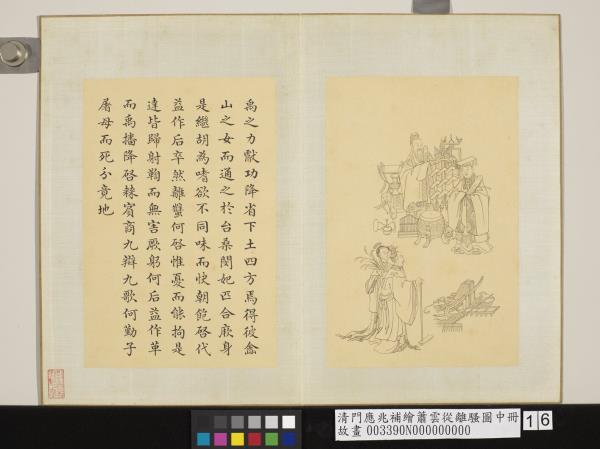 禹之力獻功降省下土四方焉得彼嵞
山之女而通之於台桑閔妃匹合厥身
是繼胡為嗜欲不同味而快朝飽啓代
益作后卒然離蠥何啓惟憂而能拘是
達皆歸射鞫而無害厥躬何后益作革
而禹播降啓棘賓商九辯九歌何勤子
屠母而死分竟地
清門應兆補繪蕭雲從離騷圖中冊
故畫 003390N000000000
16